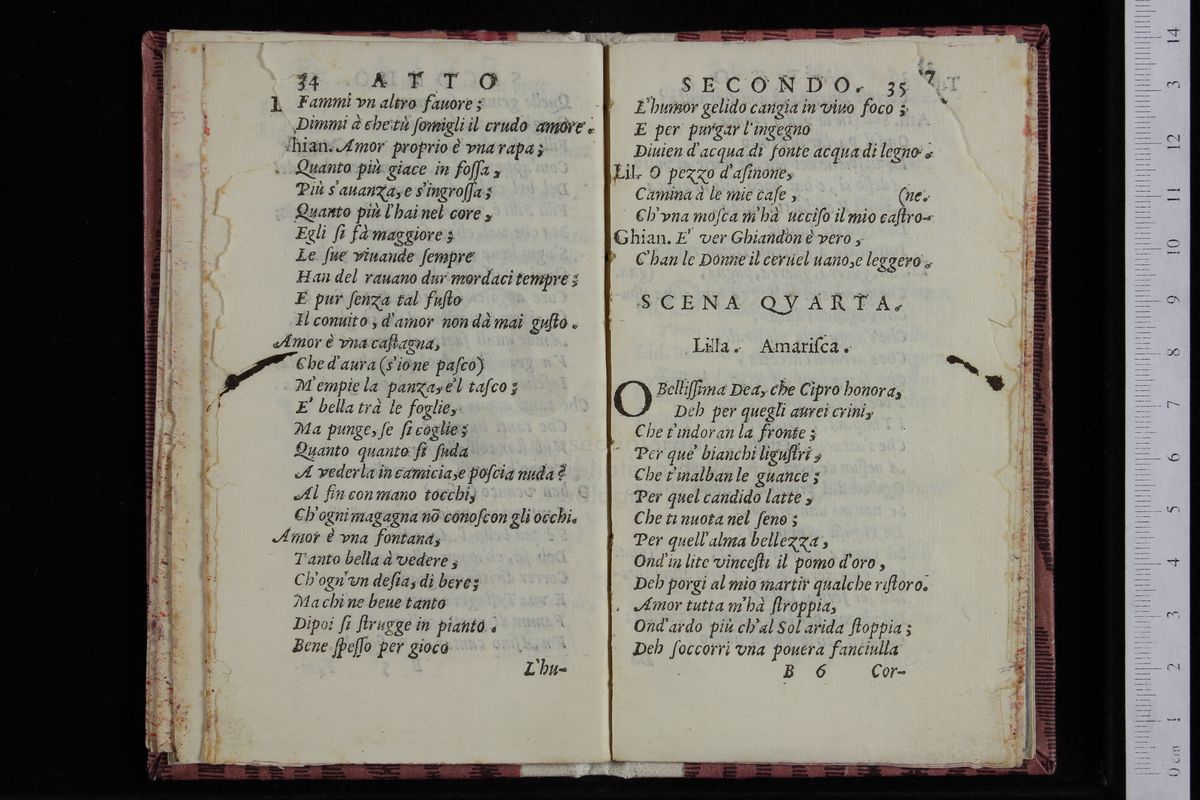 34 ATTO
Fammi vn altro fauore;
Dimmi à che tù ſomigli il crudo amore.
hian. Amor proprio è vna rapa;
Quanto più giace in foſſa,
Più s'auanza, e s'ingroſſa;
Quanto più l'hai nel core,
Egli ſi fà maggiore;
Le ſue viuande ſempre
Han del rauano dur mordaci tempre;
E pur ſenza tal fuſto
Il conuito, d'amor non dà mai guſto.
Amor è vna caſtagna,
Che d'aura (s'io ne paſco)
M'empie la panza, e'l taſco;
E' bella trà le foglie,
Ma punge, ſe ſi coglie;
Quanto quanto ſi ſuda
A vederla in camicia, e poſcia nuda?
Al fin con mano tocchi,
Ch'ogni magagna nō conoſcon gli occhi.
Amor è vna fontana,
Tanto bella à vedere,
Ch'ogn'vn deſia, di bere;
Ma chi ne beue tanto
Dipoi ſi ſtrugge in pianto.
Bene ſpeſſo per gioco
L'hu-
SECONDO. 35
L'humor gelido cangia in viuo foco;
E per purgar l'ingegno
Diuien d'acqua di fonte acqua di legno.
Lil. O pezzo d'aſinone,
Camina à le mie caſe, (ne.
Ch'vna moſca m'hà ucciſo il mio caſtro-
Ghian. E' ver Ghiandon è vero,
C'han le Donne il ceruel uano, e leggero.
SCENA QVARTA.
Lilla. Amariſca.
O Belliſſima Dea, che Cipro honora,
Deh per quegli aurei crini,
Che t'indoran la fronte;
Per que' bianchi liguſtri,
Che t'inalban le guance;
Per quel candido latte,
Che ti nuota nel ſeno;
Per quell'alma bellezza,
Ond'in lite vinceſti il pomo d'oro,
Deh porgi al mio martir qualche riſtoro.
Amor tutta m'hà ſtroppia,
Ond'ardo più ch'al Sol arida ſtoppia;
Deh ſoccorri vna pouera fanciulla
B 6 Cor-
0 cm 1 2 3 4 5 6 7 8 9 10 11 12 13 14